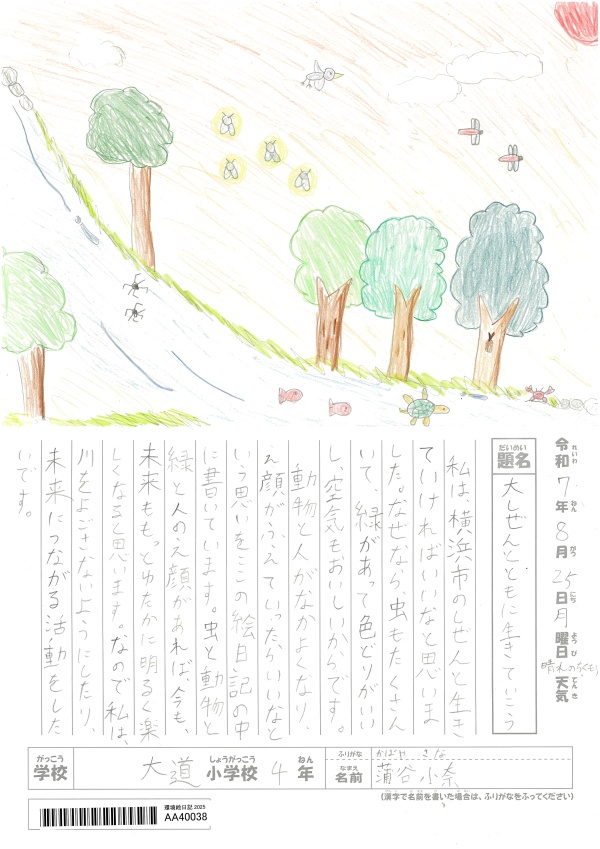 れいわ ねん がつ にち ようび てんき
令和7年8月25日月曜日 晴れのちくもり 天気
だいめい
題名
大しぜんとともに生きていこう
私は、横浜市のしぜんと生き
ていければいいなと思いま
した。なぜなら、虫もたくさん
いて、緑があって色どりがいい
し、空気もおいしいからです。
動物と人がなかよくなり、
え顔がふえていったらいいなと
いう思いをここの絵日記の中
に書いています。虫と動物と
緑と人のえ顔があれば、今も、
未来ももっとゆたかに明るく楽
しくなると思います。なので私は、
川をよごさないようにしたり、
未来につながる活動をした
いです。
がっこう
学校
大道 しょうがっこう 小学校 4 ねん 年
ふりがな
かばや きな
なまえ
名前
蒲谷 小奈
(漢字で名前を書いた場合は、ふりがなをふってください)
環境絵日記 2025
AA40038